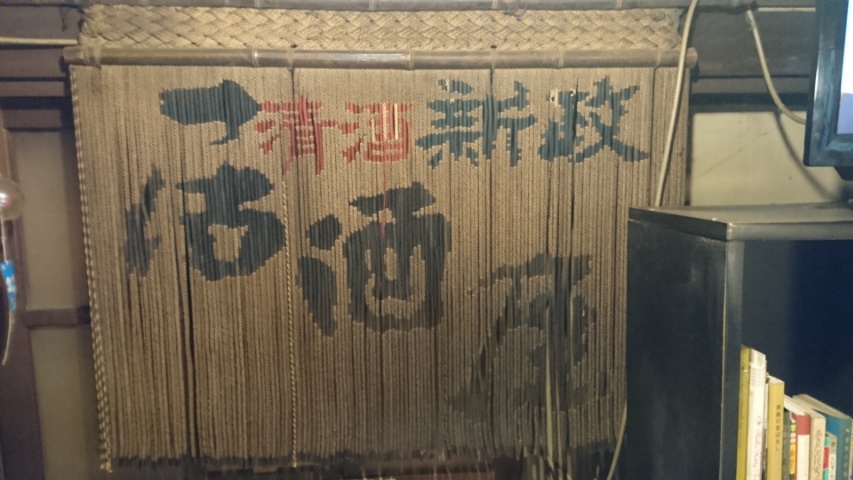 清酒 新政
居酒屋